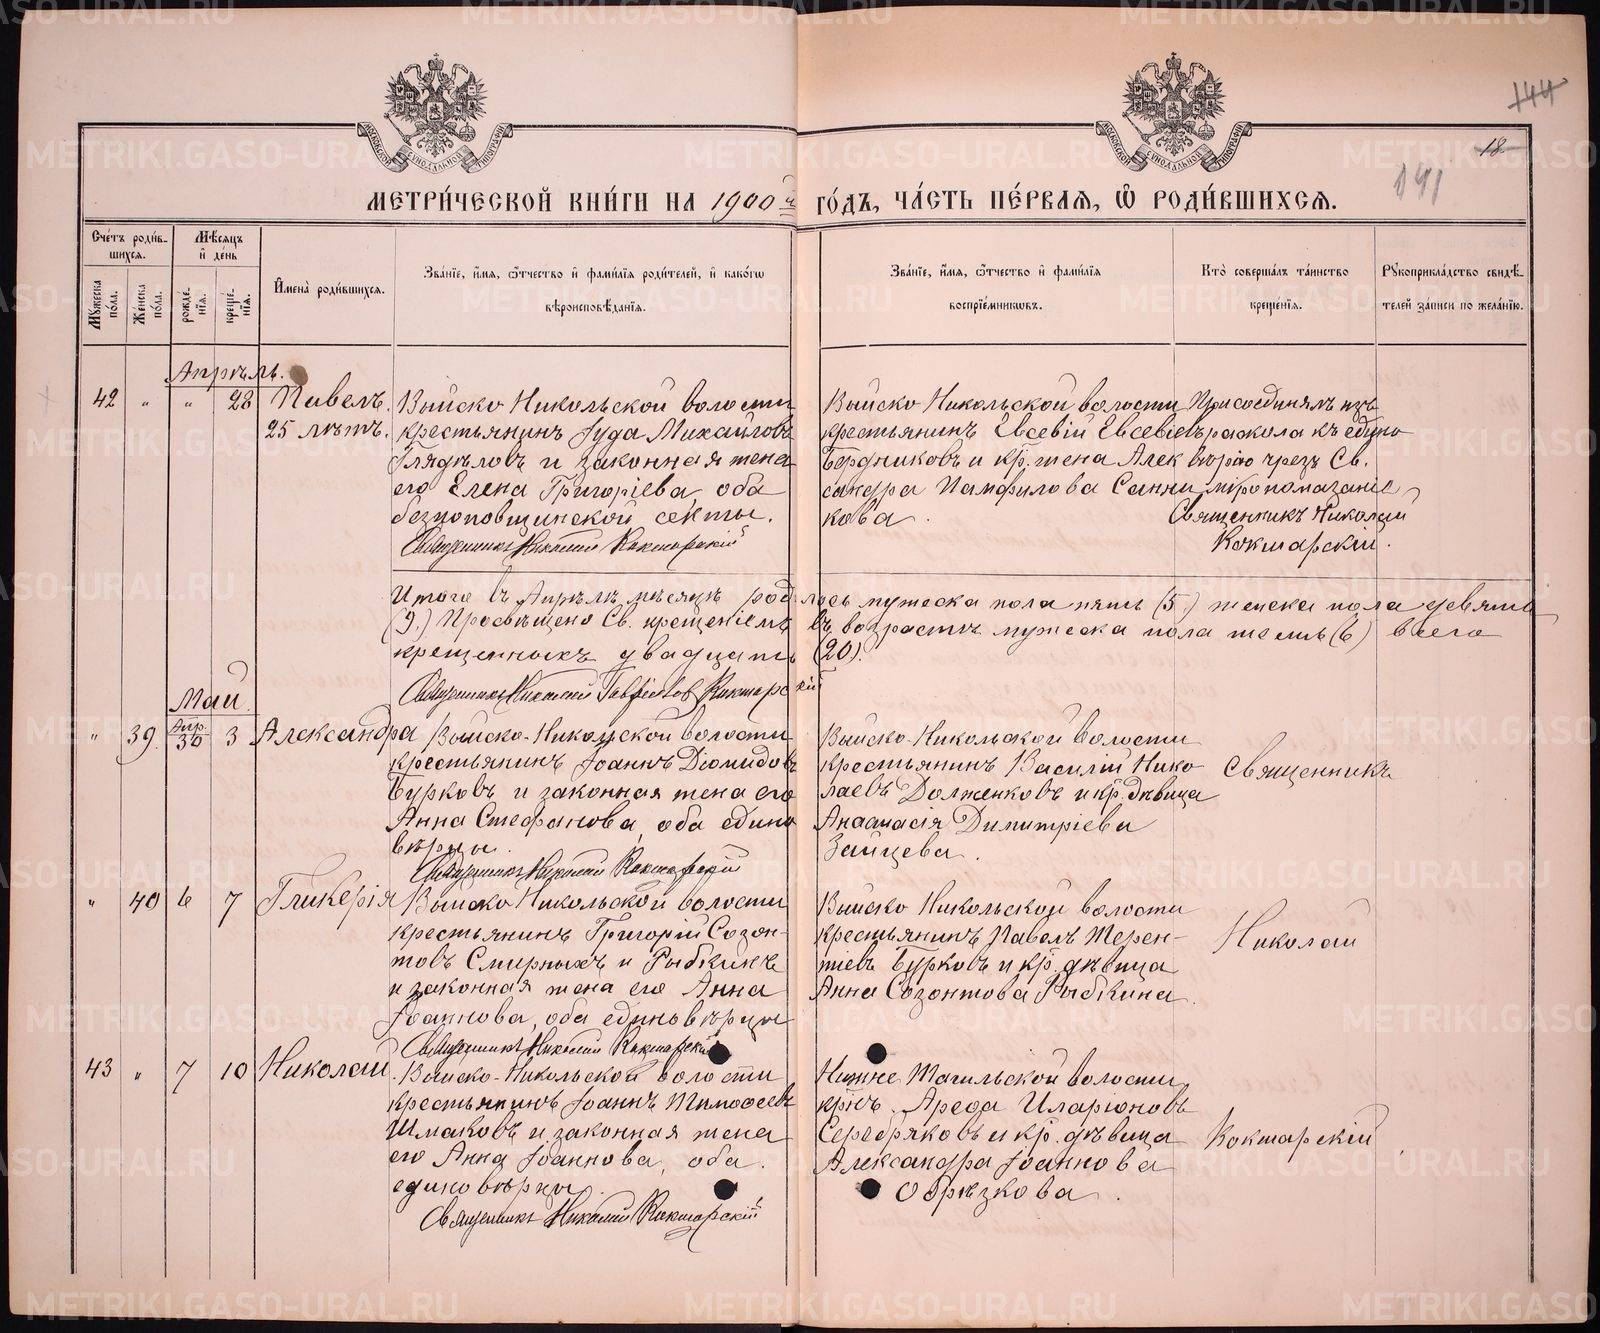 144
18
141
МЕТРИ́ЧЕСКОЙ КНИ́ГИ НА 1900 й ГО́ДЪ, ЧА́СТЬ ПЕ́РВАЯ, Ѡ РОДИ́ВШИХСЯ.
МОСКОВСКОЙ СѴНОДАЛЬНОЙ ТИПОГРАФІИ
МОСКОВСКОЙ СѴНОДАЛЬНОЙ ТИПОГРАФІИ
Сче́тъ роди́вшихся.
Мꙋжеска пола.
Же́нска по́ла.
Мѣ́сяцъ и҆ де́нь
рожде́нїѧ.
креще́нїѧ.
И҆мена̀ роди́вшихсѧ.
Зва́нїе, и҆́мѧ, ѻ҆́тчество и҆ фами́лїѧ роди́телей, и҆ како́гѡ вѣроисповѣ́данїѧ.
Зва́нїе, и҆́мѧ, ѻ҆́тчество и҆ фами́лїѧ воспрїе́мникѡвъ.
Кто̀ соверша́лъ та́инство креще́нїѧ.
Рꙋкоприкла́дство свидѣ́телей за́писи по жела́нїю.
Апрѣль.
42 " " 28 Павелъ.
25 лѣтъ.
Выйско Никольской волости
крестьянинъ Іуда Михайловъ
Глядѣловъ и законная жена
его Елена Григоріева, оба
безпоповщинской секты.
Священникъ Николай Кокшарскій
Выйско Никольской волости
крестьянинъ Евсевій Евсевіевъ
Бердниковъ и кр. жена Алек
сандра Памфилова Санни
кова.
Присоединялъ изъ
раскола къ едино
вѣрію чрезъ Св.
мѵропомазаніе
Священникъ Николай
Кокшарскій.
Итого въ Апрѣлѣ мѣсяцѣ родилось мужеска пола пять (5.) женска пола девять
(9.) Просвѣщено Св. крещеніемъ въ возрастѣ мужеска пола шесть (6) всего
крещенныхъ двадцать (20).
Священникъ Николай Гавріиловъ Кокшарскій
Май.
" 39 Апр. 30 3 Александра
Выйско-Никольской волости
крестьянинъ Іоаннъ Діомидовъ
Бурковъ и законная жена его
Анна Стефанова, оба едино
вѣрцы.
Священникъ Николай Кокшарскій
Выйско-Никольской волости
крестьянинъ Василій Нико
лаевъ Долженковъ и кр. дѣвица
Анастасія Димитріева
Зайцева.
Священникъ
" 40 6 7 Гликерія
Выйско Никольской волости
крестьянинъ Григорій Созон-
товъ Смирныхъ и Рыбкинъ
и законная жена его Анна
Іоаннова, оба единовѣрцы
Священникъ Николай Кокшарскій
Выйско Никольской волости
крестьянинъ Павелъ Терен-
тіевъ Бурковъ и кр. дѣвица
Анна Созонтова Рыбкина.
Николай
43 " 7 10 Николай.
Выйско-Никольской волости
крестьянинъ Іоаннъ Тимоѳеевъ
Шмаковъ и законная жена
его Анна Іоаннова, оба
единовѣрцы.
Священникъ Николай Кокшарскій
Нижне Тагильской волости
крнъ. Ареѳа Иларіоновъ
Серебряковъ и кр. дѣвица
Александра Іоаннова
Обрѣзкова.
Кокшарскій